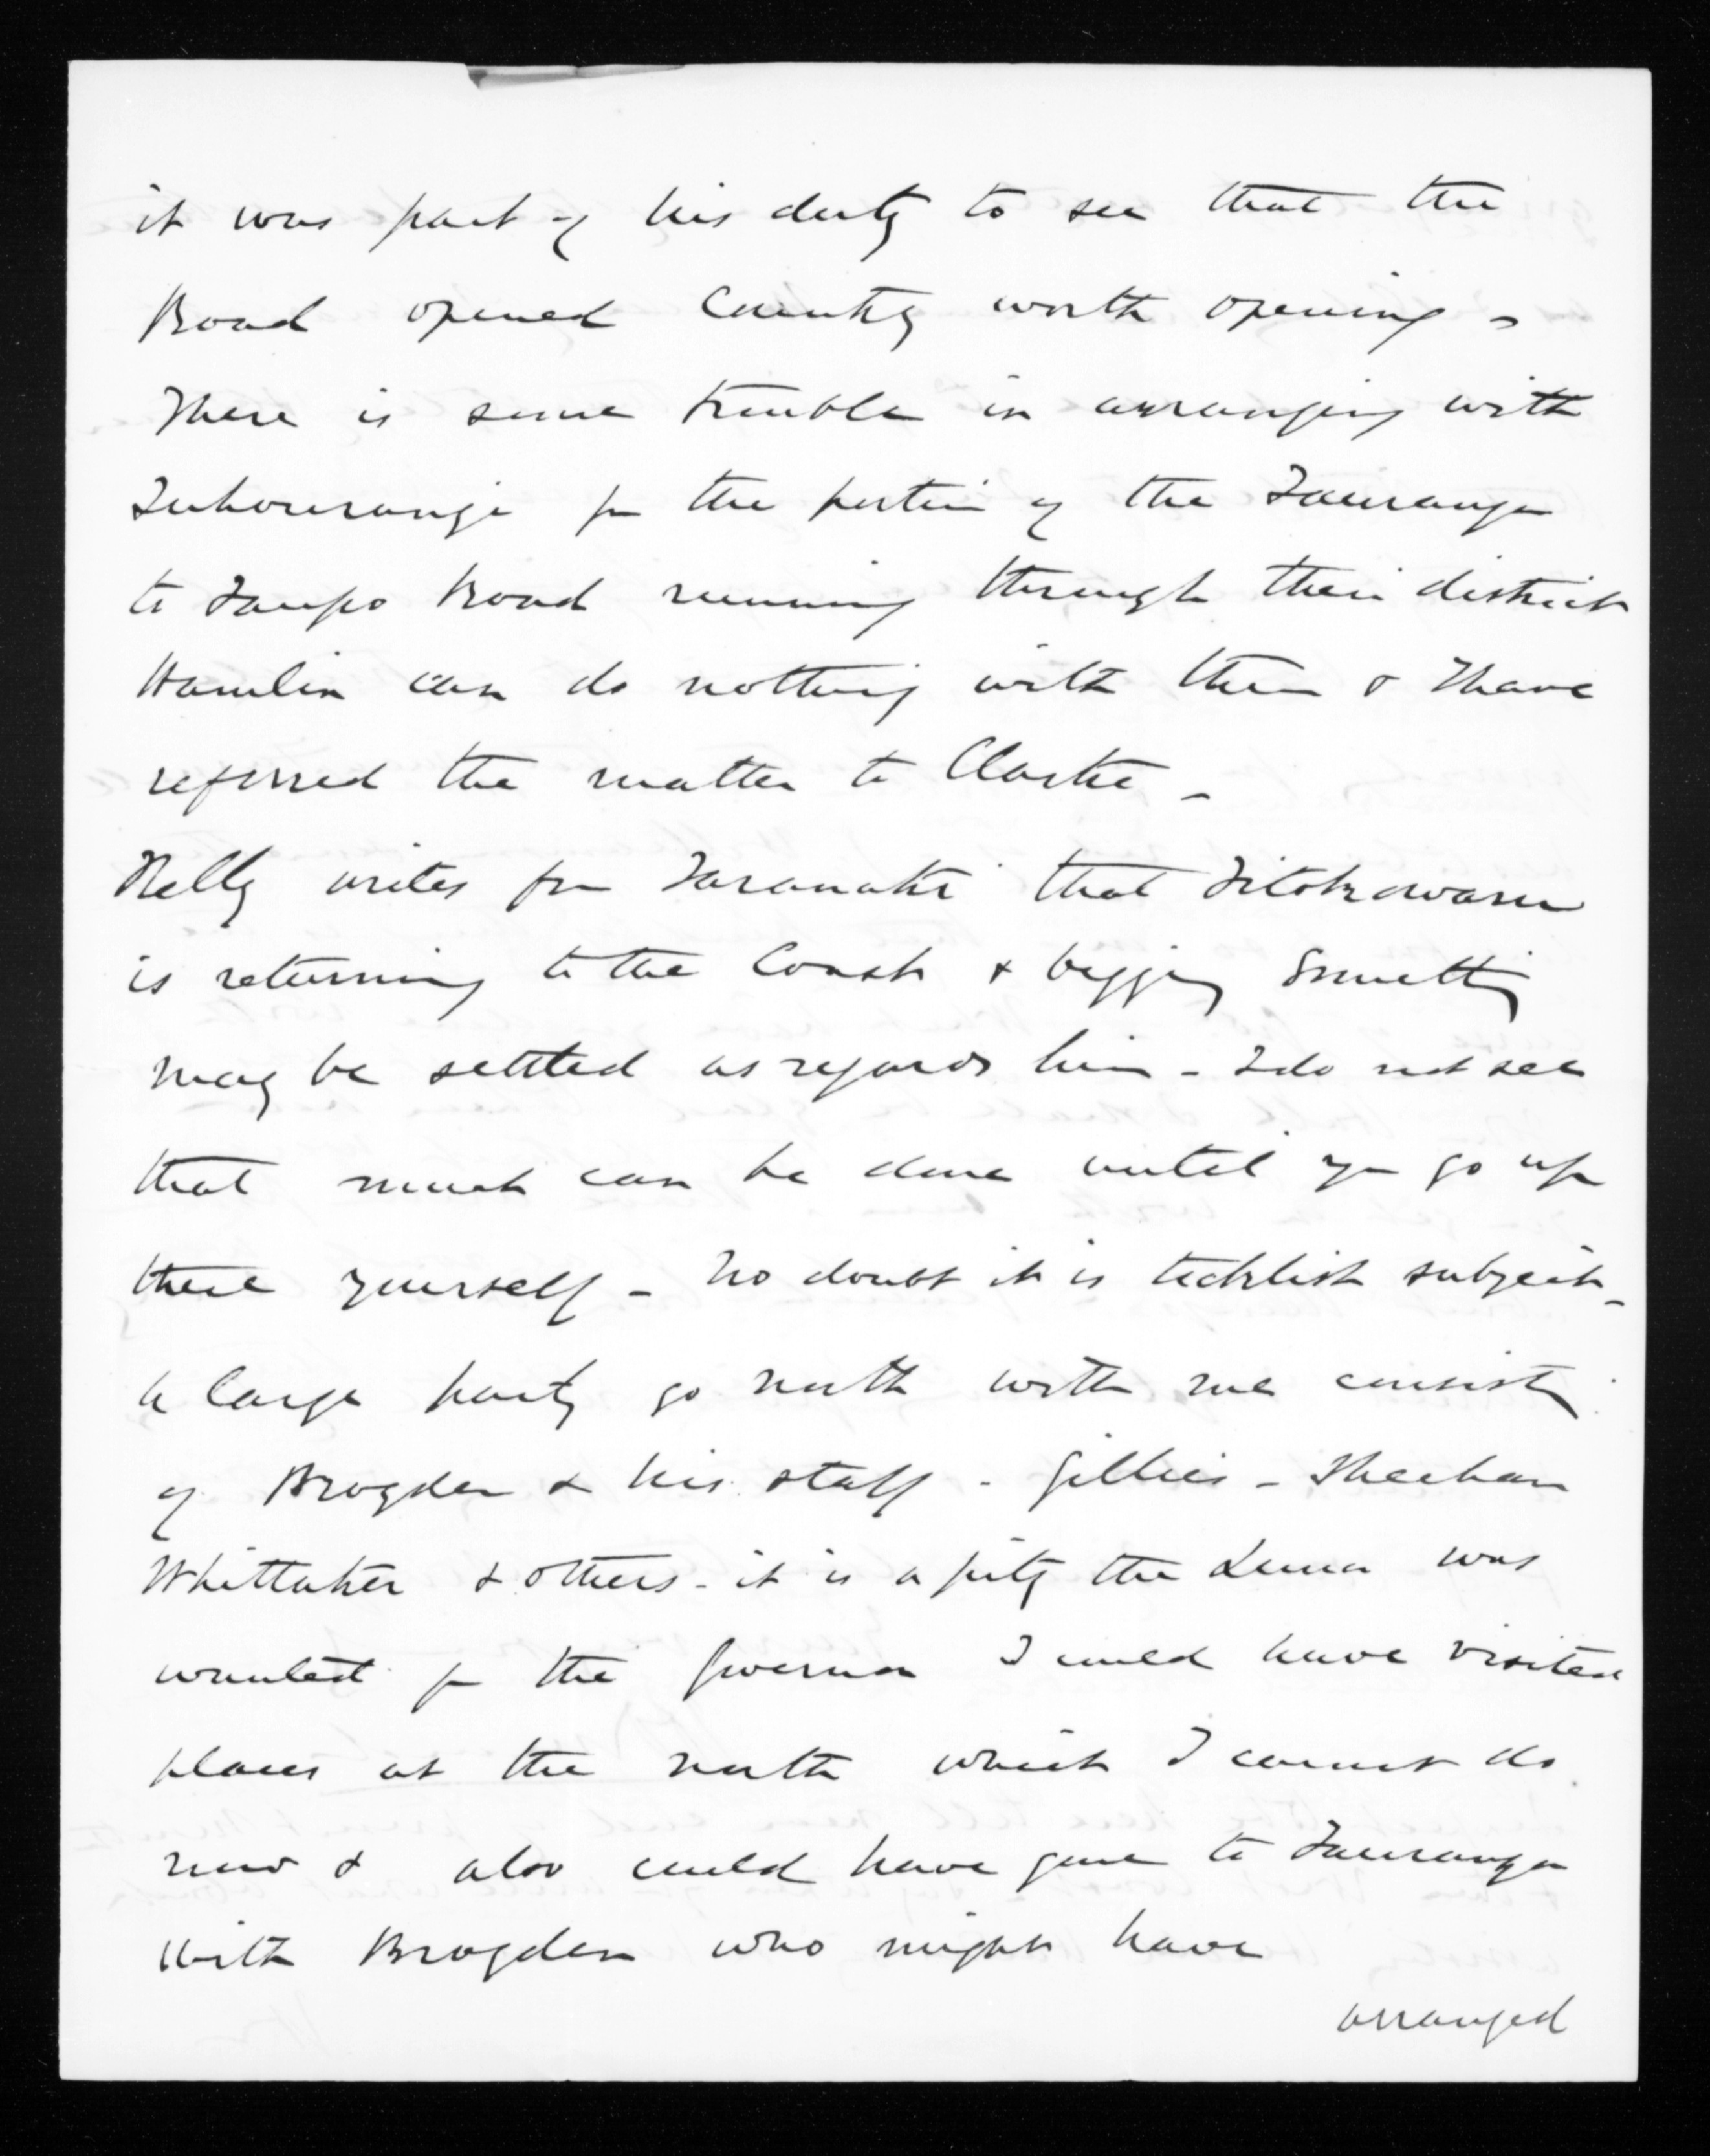 it was part of his duty to see that the
Road opened Country worth opening -
There is some trouble in arranging with
Tuhourangi for the portion of the Tauranga
to Taupo Road running through their district
Hamlin can do nothing with them & I have
referred the matter to Clarke -
Kelly writes from Taranaki that Titokowaru
is returning to the Coast & begging Something
may be settled as regards him - I do not see
that much can be done until you go up
there yourself - No doubt it is ticklish subject -
A large party go north with me consisting
of Brogden & his staff - Gillies - Sheehan
Whittaker & others - it is a pity the Luna was
wanted for the Governor I could have visited
places at the north which I cannot do
now & also could have gone to Tauranga
with Brogden who might have
arranged